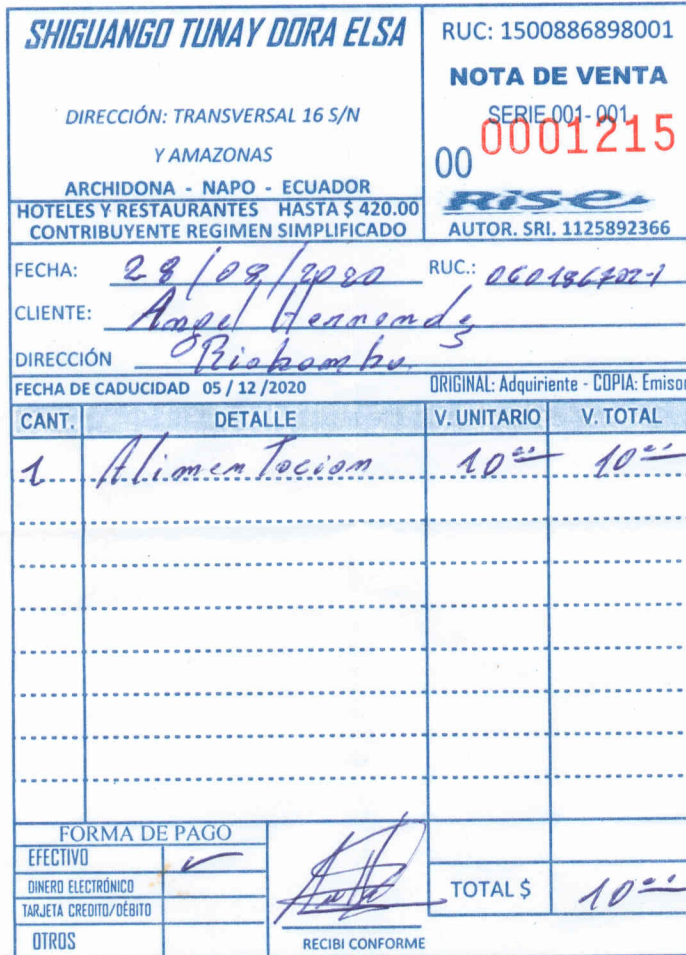 SHIGUANGO TUNAY DORA ELSA
DIRECCIÓN: TRANSVERSAL 16 S/N
Y AMAZONAS
ARCHIDONA - NAPO - ECUADOR
HOTELES Y RESTAURANTES HASTA $ 420.00
CONTRIBUYENTE REGIMEN SIMPLIFICADO
RUC: 1500886898001
NOTA DE VENTA
SERIE 001-001
00 0001215
RiSe
AUTOR. SRI. 1125892366
FECHA: 28/08/2020 RUC.: 060186702-1
CLIENTE: Angel Hernandez
DIRECCIÓN Riobamba.
FECHA DE CADUCIDAD 05 / 12 /2020 ORIGINAL: Adquiriente - COPIA: Emisor
CANT. DETALLE V. UNITARIO V. TOTAL
1 Alimentacion 10.00 10.00
FORMA DE PAGO
EFECTIVO ✓
DINERO ELECTRÓNICO
TARJETA CREDITO/DÉBITO
OTROS
RECIBI CONFORME
TOTAL $ 10.00